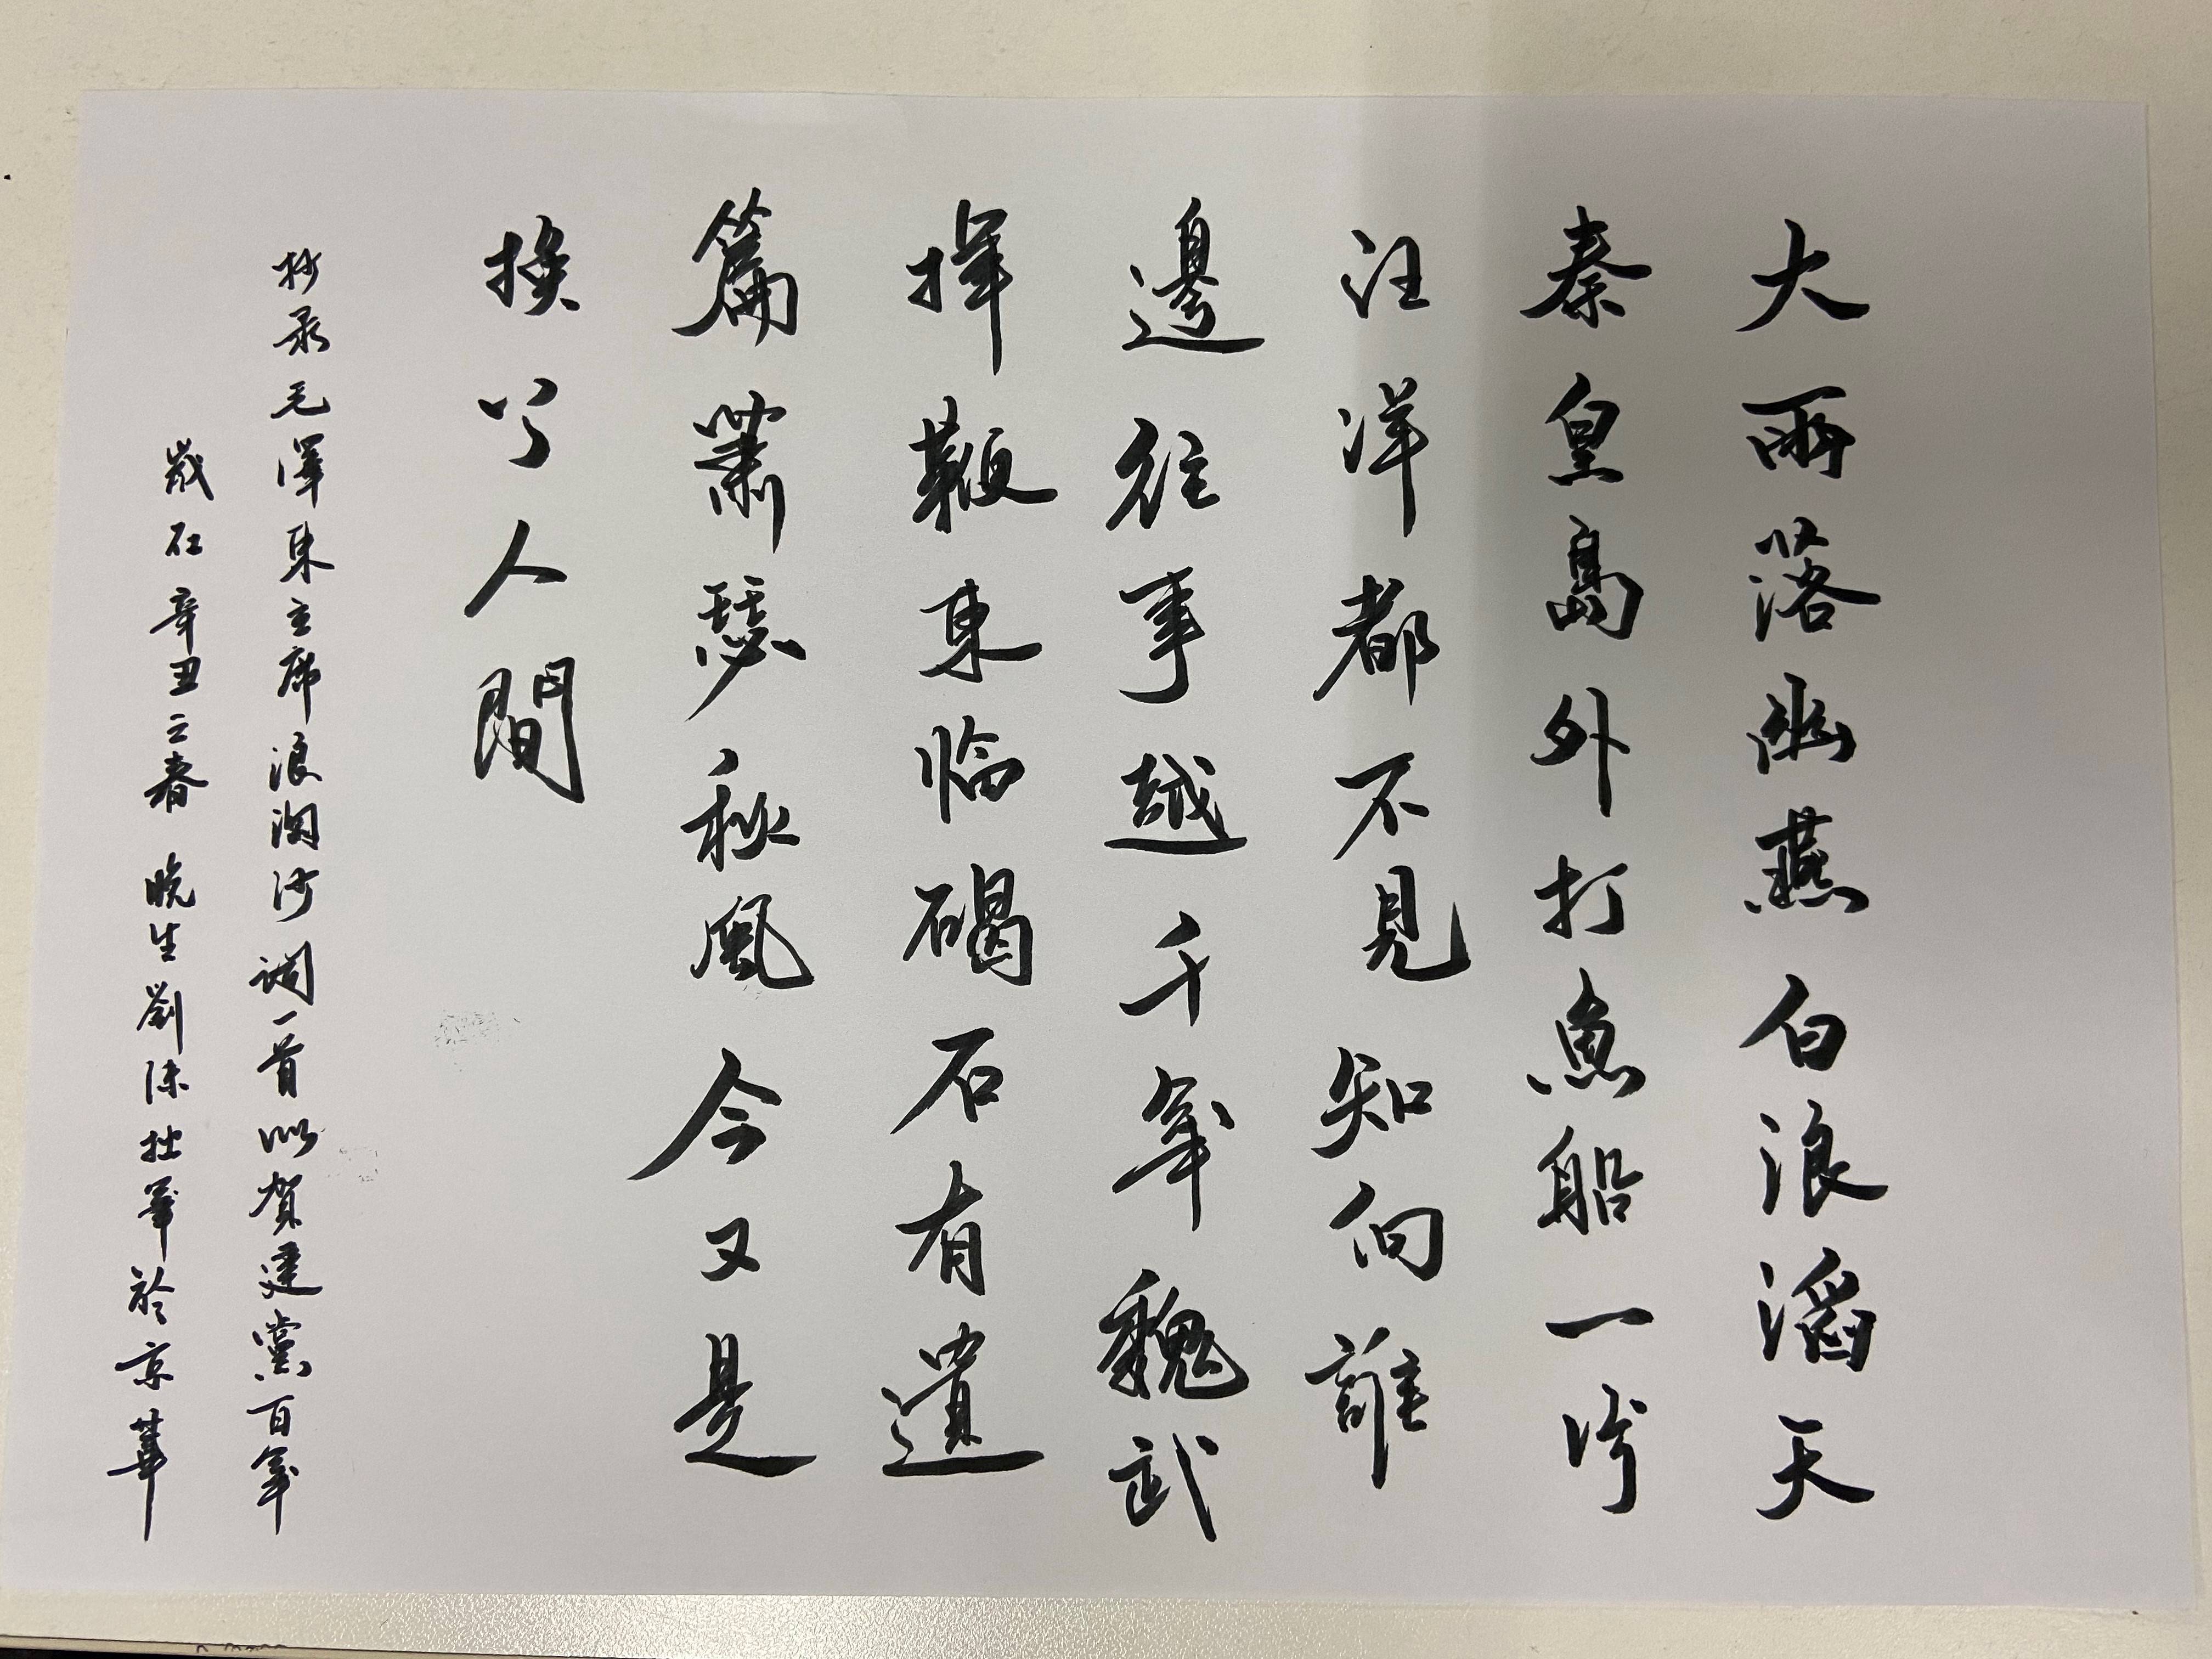 大雨落幽燕白浪滔天
秦皇島外打魚船一片
汪洋都不見知向誰
邊往事越千年魏武
揮鞭東臨碣石有遺
篇蕭瑟秋風今又是
換了人間
抄录毛澤東主席浪淘沙词一首以賀建黨百年
歲在辛丑立春晚生劉沫拙筆於京華